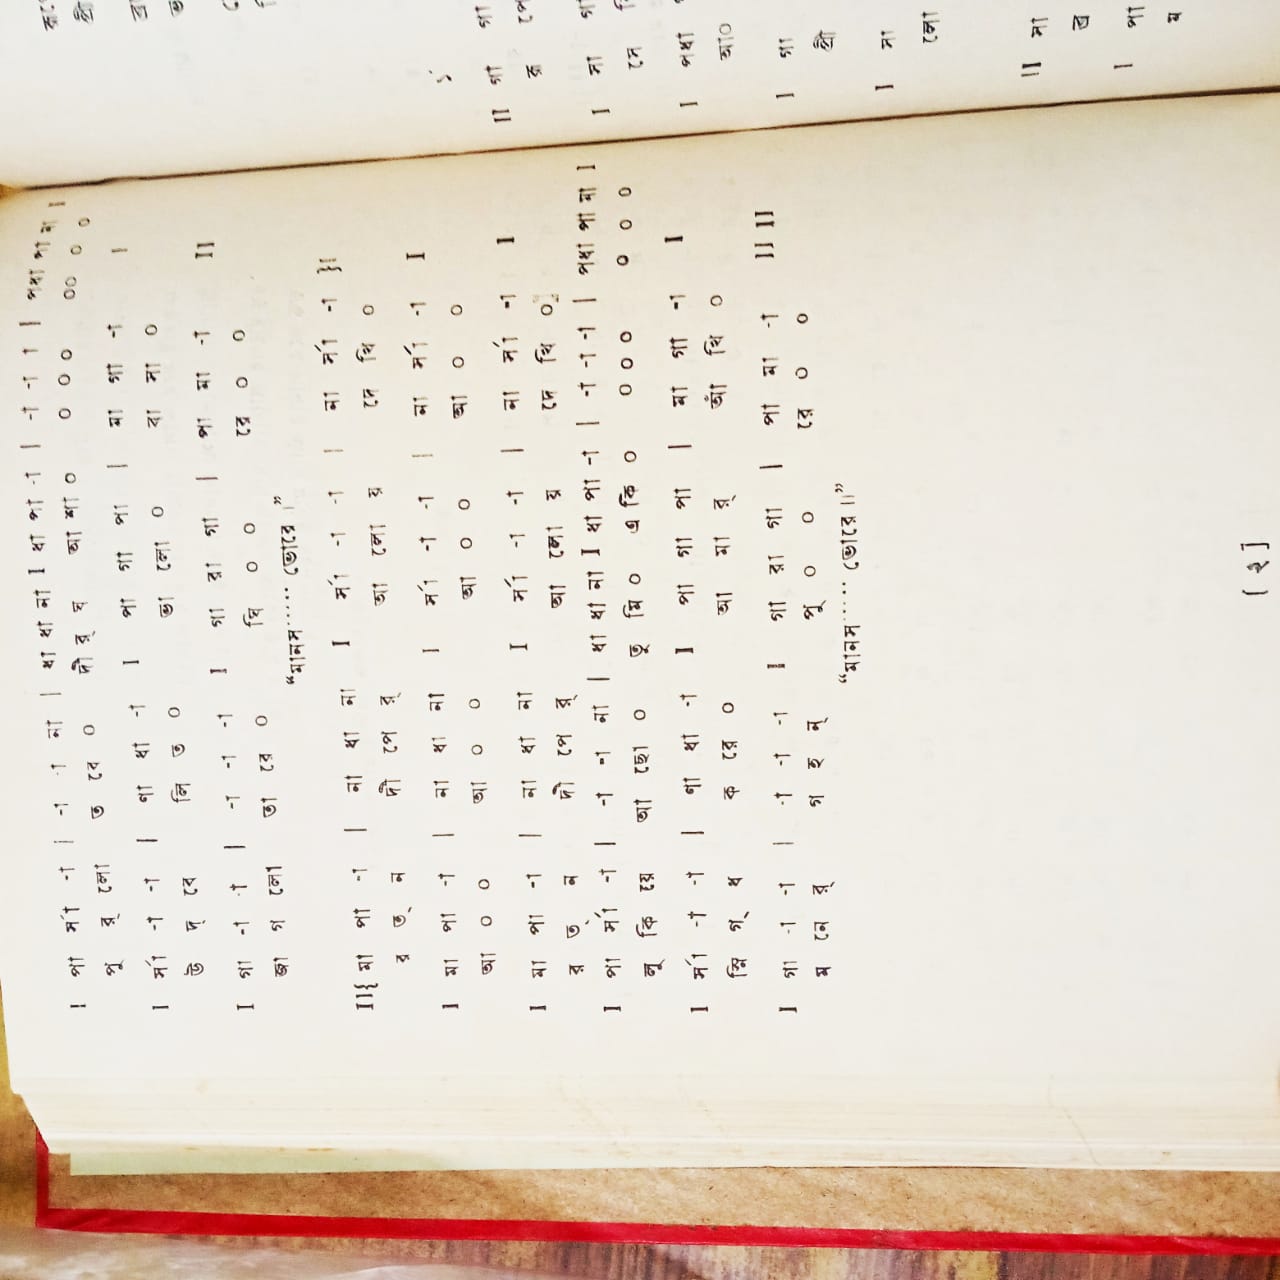 I পা র্সা -া | -া -া না | ধা ধা না I ধা পা -া | -া -া া | পধা পা মা I
পূ র্ লো ত বে ০ দী র্ ঘ আ শা ০ ০ ০ ০ ০০ ০ ০
I র্সা -া -া | ণা ধা -া I পা গা পা | মা গা -া I
উ দ্ বে লি ত ০ ভা লো ০ বা সা ০
I গা -া -া | -া -া -া I গা রা গা | পা মা -া II
জা গ লো তা রে ০ ঘি ০ ০ রে ০ ০
“মানস..... ভোরে ।”
II{ মা পা -া | না ধা না I র্সা -া -া | না র্সা -া }I
র ত্ ন দী পে র্ আ লো য় দে খি ০
I মা পা -া | না ধা না I র্সা -া -া | না র্সা -া I
আ ০ ০ আ ০ ০ আ ০ ০ আ ০ ০
I মা পা -া | না ধা না I র্সা -া -া | না র্সা -া I
র ত্ ন দী পে র্ আ লো য় দে খি ০
I পা র্সা -া | -া -া না | ধা ধা না I ধা পা -া | -া -া -া | পধা পা মা I
লু কি য়ে আ ছো ০ তু মি ০ এ কি ০ ০ ০ ০ ০ ০ ০
I র্সা -া -া | ণা ধা -া I পা গা পা | মা গা -া I
স্নি গ্ ধ ক রে ০ আ মা র্ আঁ খি ০
I গা -া -া | -া -া -া I গা রা গা | পা মা -া II II
ম নে র্ গ হ ন্ পু ০ ০ রে ০ ০
“মানস..... ভোরে ॥”
[ ২ ]